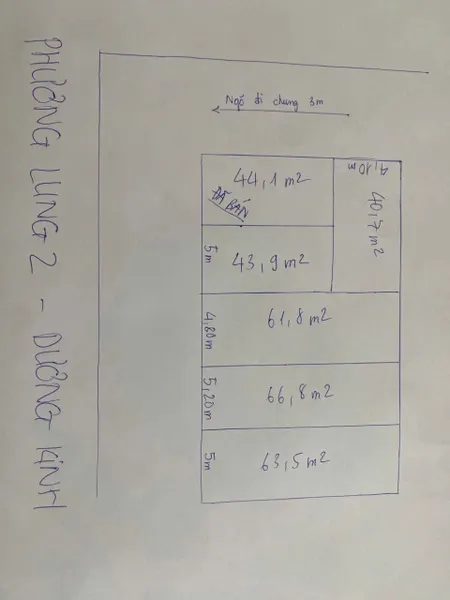 PHƯƠNG LUNG 2 - DƯƠNG KINH
Ngõ đi chung 3m
44,1 m2
ĐÃ BÁN
4,10m
40,7 m2
5m
43,9 m2
4,80m
61,8 m2
5,20m
66,8 m2
5m
63,5 m2